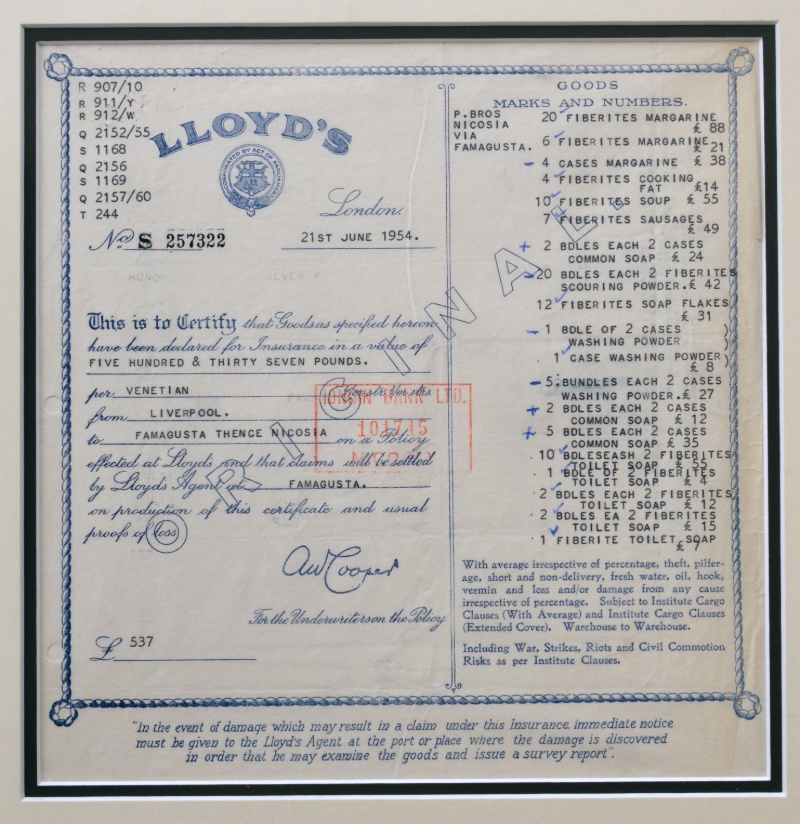 R 907/10
R 911/Y
R 912/W
Q 2152/55
S 1168
Q 2156
S 1169
Q 2157/60
T 244
LLOYD'S
INCORPORATED BY ACT OF PARLIAMENT
London.
No S 257322
21ST JUNE 1954.
This is to Certify that Goods as specified hereon
have been declared for Insurance in a value of
FIVE HUNDRED & THIRTY SEVEN POUNDS.
per VENETIAN
from LIVERPOOL.
to FAMAGUSTA THENCE NICOSIA on a Policy
effected at Lloyd's and that claims will be settled
by Lloyd's Agent at FAMAGUSTA.
on production of this certificate and usual
proofs of loss
IONIAN BANK LTD.
101745
ORIGINAL
AW Cooper
For the Underwriters on the Policy
£ 537
GOODS
MARKS AND NUMBERS.
P.BROS
NICOSIA
VIA
FAMAGUSTA.
20 FIBERITES MARGARINE
£ 88
6 FIBERITES MARGARINE
£ 21
4 CASES MARGARINE £ 38
4 FIBERITES COOKING
FAT £14
10 FIBERITES SOUP £ 55
7 FIBERITES SAUSAGES
£ 49
+ 2 BDLES EACH 2 CASES
COMMON SOAP £ 24
-20 BDLES EACH 2 FIBERITES
SCOURING POWDER.£ 42
12 FIBERITES SOAP FLAKES
£ 31
- 1 BDLE OF 2 CASES )
WASHING POWDER )
1 CASE WASHING POWDER)
£ 8)
- 5.BUNDLES EACH 2 CASES
WASHING POWDER.£ 27
+ 2 BDLES EACH 2 CASES
COMMON SOAP £ 12
+ 5 BDLES EACH 2 CASES
COMMON SOAP £ 35
10 BDLESEASH 2 FIBERITES
TOILET SOAP £ 55
1 BDLE OF 2 FIBERITES
TOILET SOAP £ 4
2 BDLES EACH 2 FIBERITES
TOILET SOAP £ 12
2 BDLES EA 2 FIBERITES
TOILET SOAP £ 15
1 FIBERITE TOILET SOAP
£ 7
With average irrespective of percentage, theft, pilfer-
age, short and non-delivery, fresh water, oil, hook,
vermin and loss and/or damage from any cause
irrespective of percentage. Subject to Institute Cargo
Clauses (With Average) and Institute Cargo Clauses
(Extended Cover). Warehouse to Warehouse.
Including War, Strikes, Riots and Civil Commotion
Risks as per Institute Clauses.
"In the event of damage which may result in a claim under this Insurance. immediate notice
must be given to the Lloyd's Agent at the port or place where the damage is discovered
in order that he may examine the goods and issue a survey report".